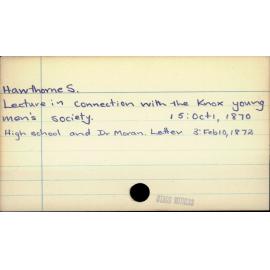 Hawthorne S.
Lecture in connection with the Knox young
men's society. 15:Oct1, 1870
High school and Dr Moran. Letter 3:Feb10, 1872